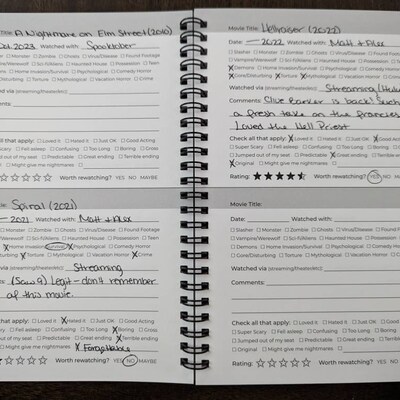 Title: A Nightmare on Elm Street (2010)
Oct. 2023 Watched with: Spooktober
☐ Monster ☐ Zombie ☐ Ghosts ☐ Virus/Disease ☐ Found Footage
Vampire/Werewolf ☐ Sci-fi/Aliens ☐ Haunted House ☐ Possession ☐ Teen
☐ Home Invasion/Survival ☐ Psychological ☐ Comedy Horror
Disturbing ☐ Torture ☐ Mythological ☐ Natural Horror ☐ Crime
via (streaming/theater/etc):
ments:
all that apply: ☐ Loved it ☐ Hated it ☐ Just OK ☐ Good Acting
Scary ☐ Fell asleep ☐ Confusing ☐ Too Long ☐ Boring ☐ Gross
ed out of my seat ☐ Predictable ☐ Great ending ☐ Terrible ending
☐ Might give me nightmares ☐
Worth rewatching? YES NO MAYBE
Title: Spiral (2021)
2021 Watched with: Matt + Alex
☐ Monster ☐ Zombie ☐ Ghosts ☐ Virus/Disease ☐ Found Footage
Vampire/Werewolf ☐ Sci-fi/Aliens ☐ Haunted House ☐ Possession ☐ Teen
X Home Invasion/Survival X Psychological ☐ Comedy Horror
Disturbing X Torture ☐ Mythological ☐ Natural Horror X Crime
via (streaming/theater/etc): Streaming
(Saw 9) Legit - don't remember
of this movie.
all that apply: ☐ Loved it X Hated it ☐ Just OK ☐ Good Acting
Scary ☐ Fell asleep ☐ Confusing ☐ Too Long X Boring ☐ Gross
ed out of my seat ☐ Predictable ☐ Great ending ☐ Terrible ending
☐ Might give me nightmares X Forgettable
Worth rewatching? YES NO MAYBE
Movie Title: Hellraiser (2022)
Date: — 2022 Watched with: Matt + Alex
☐ Slasher ☐ Monster ☐ Zombie ☐ Ghosts ☐ Virus/Disease ☐ Found Footage
☐ Vampire/Werewolf ☐ Sci-fi/Aliens ☐ Haunted House ☐ Possession ☐ Teen
X Demons ☐ Home Invasion/Survival ☐ Psychological ☐ Comedy Horror
X Gore/Disturbing X Torture X Mythological ☐ Natural Horror ☐ Crime
Watched via (streaming/theater/etc): Streaming (Hulu)
Comments: Clive Barker is back! Such
a fresh take on the franchise
Loved the Hell Priest
Check all that apply: X Loved it ☐ Hated it ☐ Just OK X Good Acting
☐ Super Scary ☐ Fell asleep ☐ Confusing ☐ Too Long ☐ Boring ☐ Gross
☐ Jumped out of my seat ☐ Predictable X Great ending ☐ Terrible ending
X Original ☐ Might give me nightmares ☐
Rating: Worth rewatching? YES NO MAYBE
Movie Title:
Date: Watched with:
☐ Slasher ☐ Monster ☐ Zombie ☐ Ghosts ☐ Virus/Disease ☐ Found Footage
☐ Vampire/Werewolf ☐ Sci-fi/Aliens ☐ Haunted House ☐ Possession ☐ Teen
☐ Demons ☐ Home Invasion/Survival ☐ Psychological ☐ Comedy Horror
☐ Gore/Disturbing ☐ Torture ☐ Mythological ☐ Natural Horror ☐ Crime
Watched via (streaming/theater/etc):
Comments:
Check all that apply: ☐ Loved it ☐ Hated it ☐ Just OK ☐ Good Acting
☐ Super Scary ☐ Fell asleep ☐ Confusing ☐ Too Long ☐ Boring ☐ Gross
☐ Jumped out of my seat ☐ Predictable ☐ Great ending ☐ Terrible ending
☐ Original ☐ Might give me nightmares ☐
Rating: Worth rewatching? YES NO MAYBE